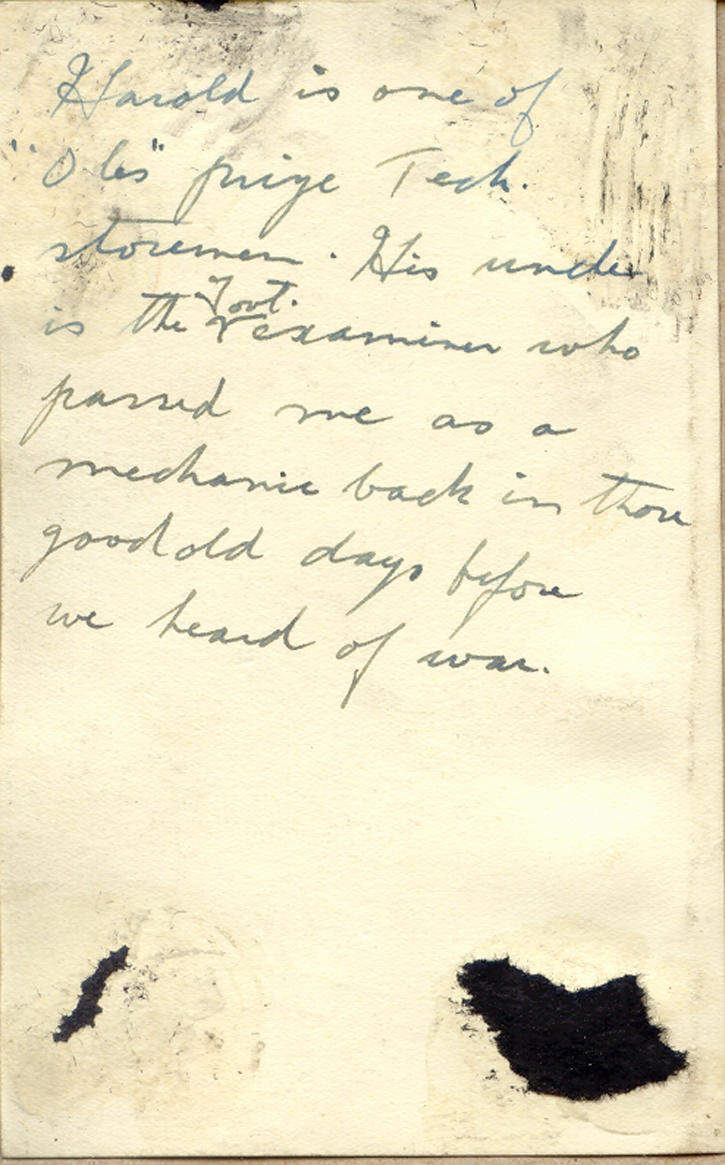 Harold is one of
"Oles" prize Tech.
storemen. His uncle
is the Govt. examiner who
passed me as a
mechanic back in those
good old days before
we heard of war.